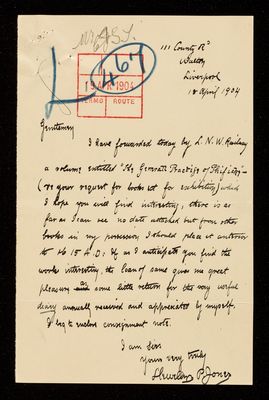 111 County Rd
Walton
Liverpool
18 April 1904
467
19 APR 1904
ROUTE
Gentlemen
I have forwarded today by L. N. W. Railway
a volume entitled "The
(re your request for books etc for exhibition) which
I hope you will find interesting, there is as
far as I can see no date attached but from other
books in my possession I should place it anterior
to 1615 A.D: If as I anticipate you find the
works interesting the loan of same gives me great
pleasure as some little return for the very useful
diary annually received and appreciated by myself.
I beg to enclose consignment note.
I am Sirs
Yours very truly
P. Jones